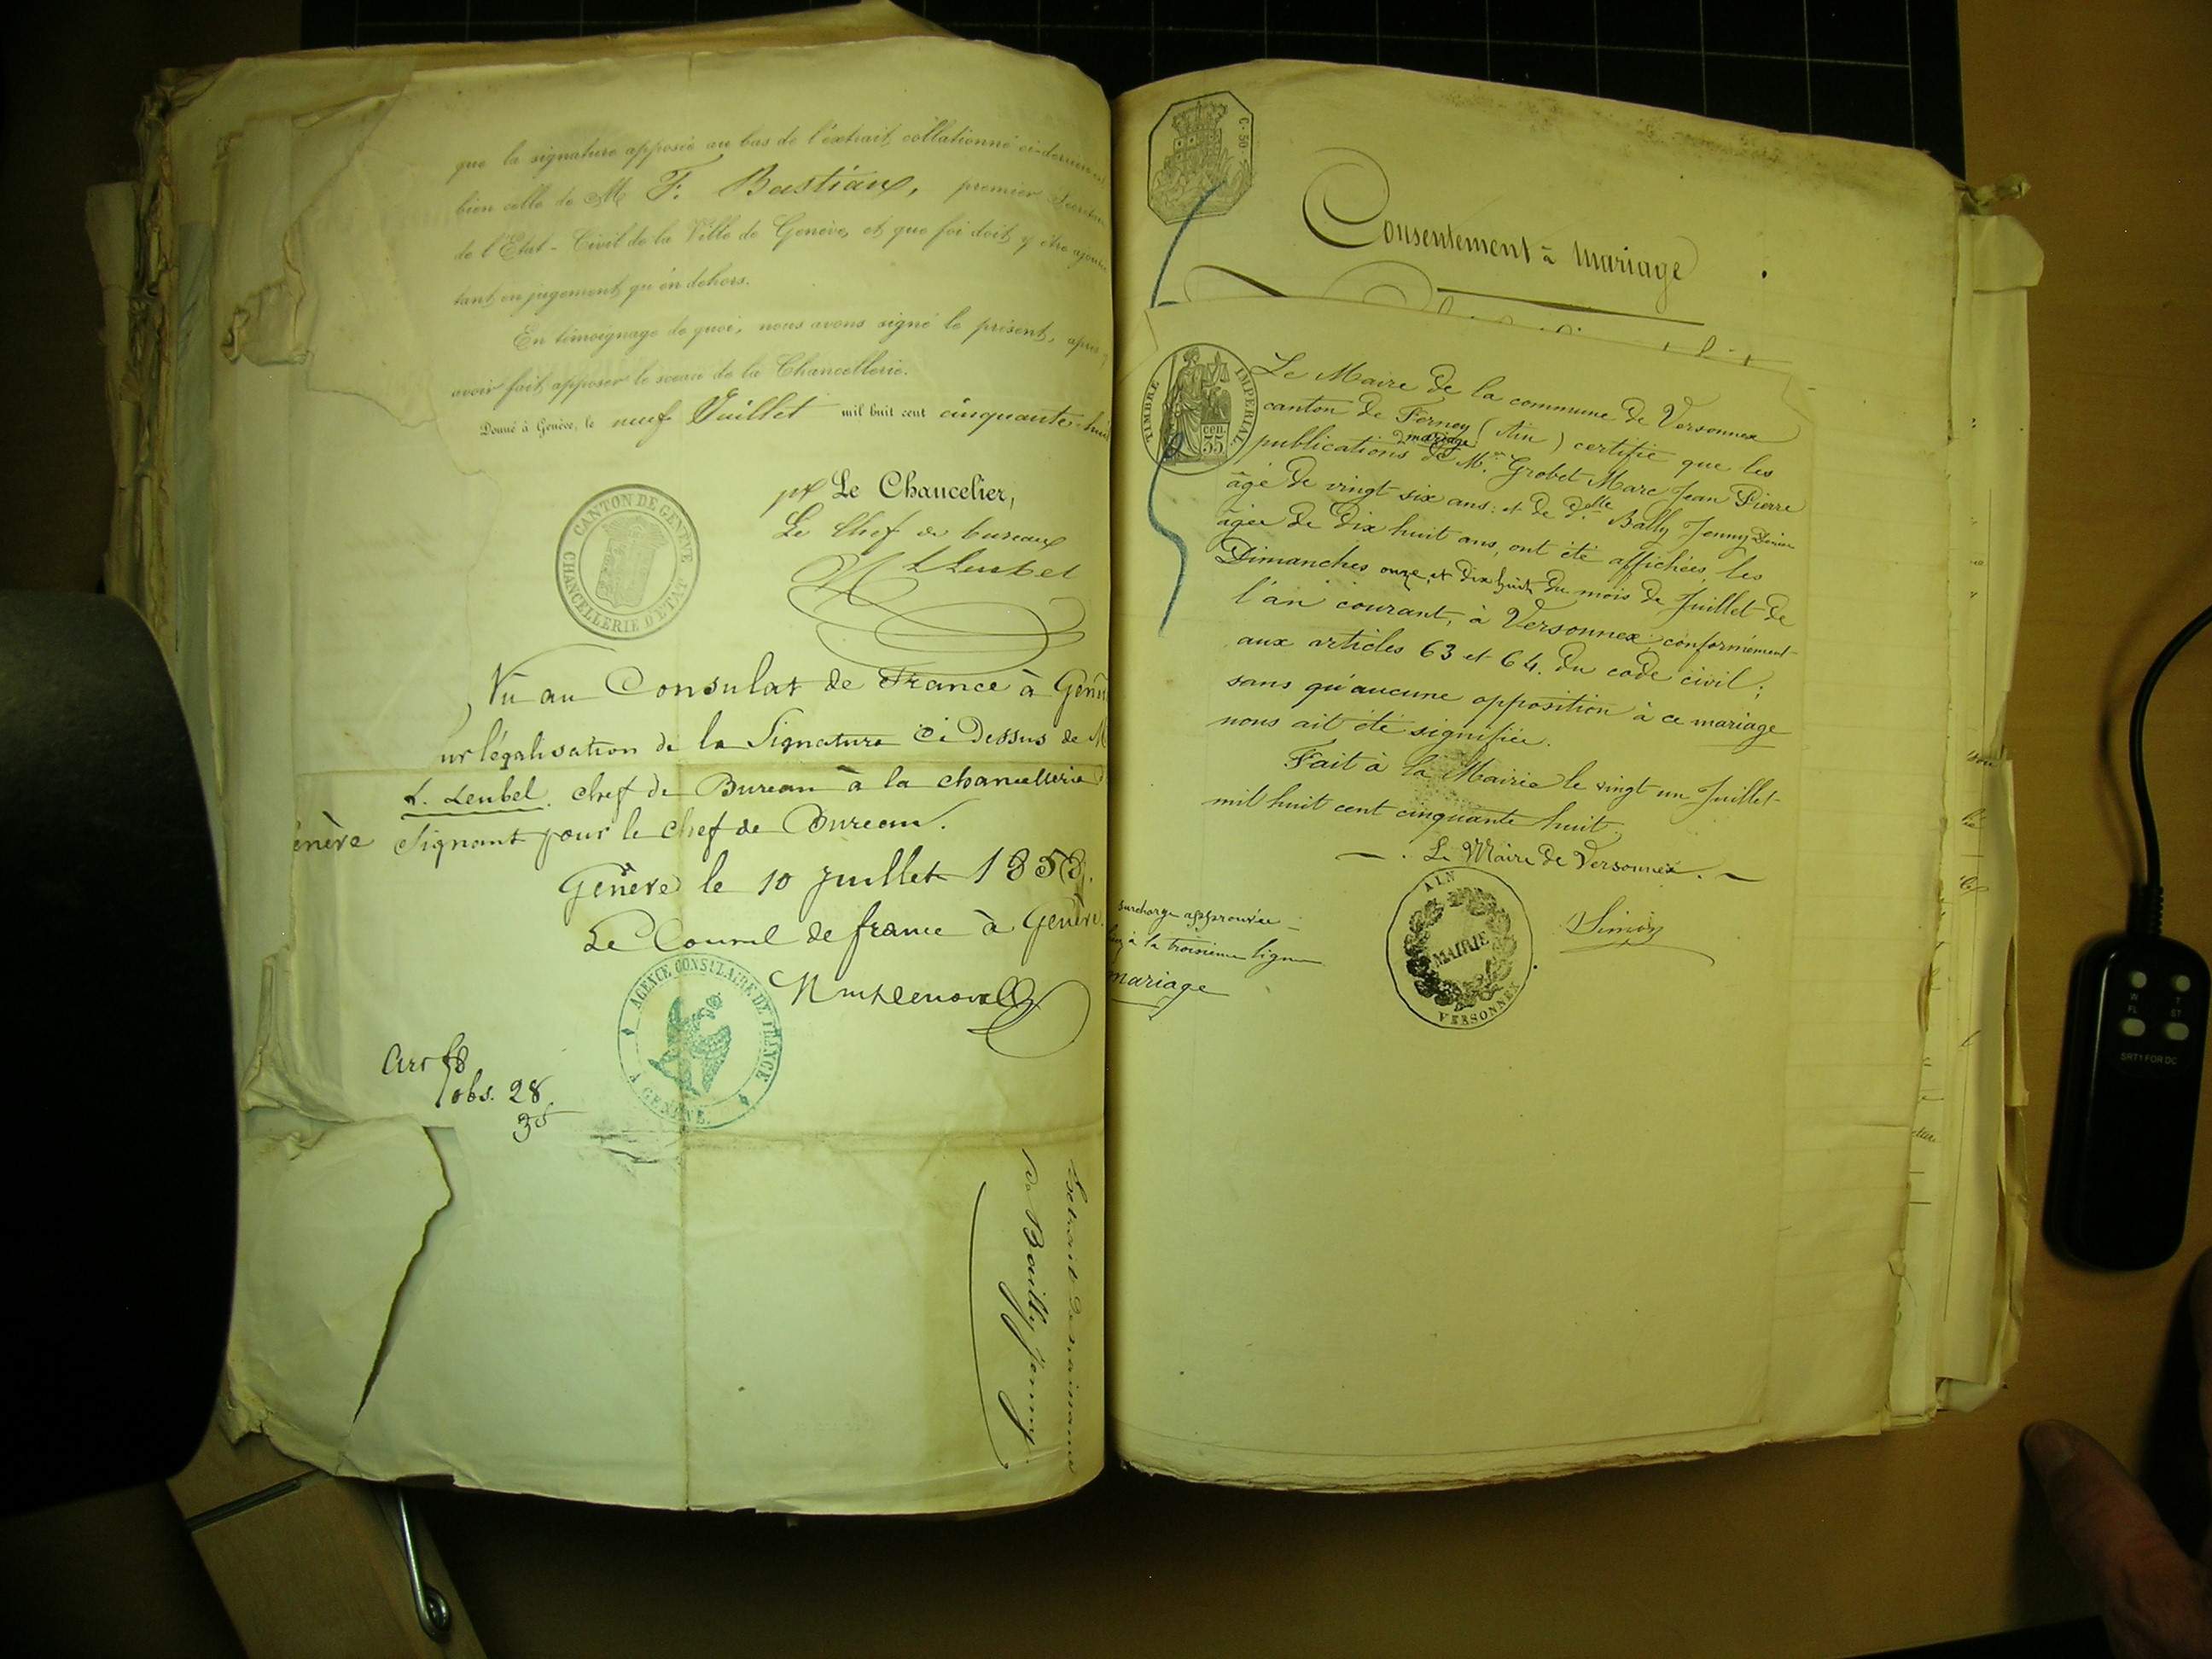 que la signature apposée au bas de l'extrait collationné
bien celle de M F. Bastian, premier
de l'Etat-Civil de la Ville de Genève, et que foi doit y être
tant en jugement qu'en dehors.
En témoignage de quoi, nous avons signé le présent, après
avoir fait apposer le sceau de la Chancellerie.
Donné à Genève, le neuf Juillet mil huit cent cinquante-huit
pr Le Chancelier,
Le Chef de bureau
CANTON DE GENÈVE
CHANCELLERIE D'ETAT
Vu au Consulat de France à
ur légalisation de la Signature ci Dessus de M
L. Leubel. chef de Bureau à la chancellerie
enève Signant pour le chef de Bureau.
Genève le 10 Juillet 1858.
Le Consul de france à Genève.
AGENCE CONSULAIRE DE FRANCE
A GENÈVE.
obs. 28
35
Extrait de naissance
de Bailly Jenny
C. 50
Consentement à mariage
TIMBRE IMPERIAL
35 cen.
Le Maire de la commune de Versonnex
canton de Ferney (Ain) certifie que les
mariage
publications de Mr. Grobet Marc Jean Pierre
âgé de vingt six ans: et de Delle Bally Jenny
âgée de dix huit ans, ont été affichées, les
Dimanches onze, et dix huit du mois de Juillet de
l'an courant, à Versonnex; conformément
aux articles 63 et 64. du code civil;
sans qu'aucune opposition à ce mariage
nous ait été signifiée.
Fait à la Mairie le vingt un Juillet
mil huit cent cinquante huit.
Le Maire de Versonnex.
surcharge approuvée
à la troisième ligne
mariage
AIN
MAIRIE
DE
VERSONNEX
SRT1 FOR DC